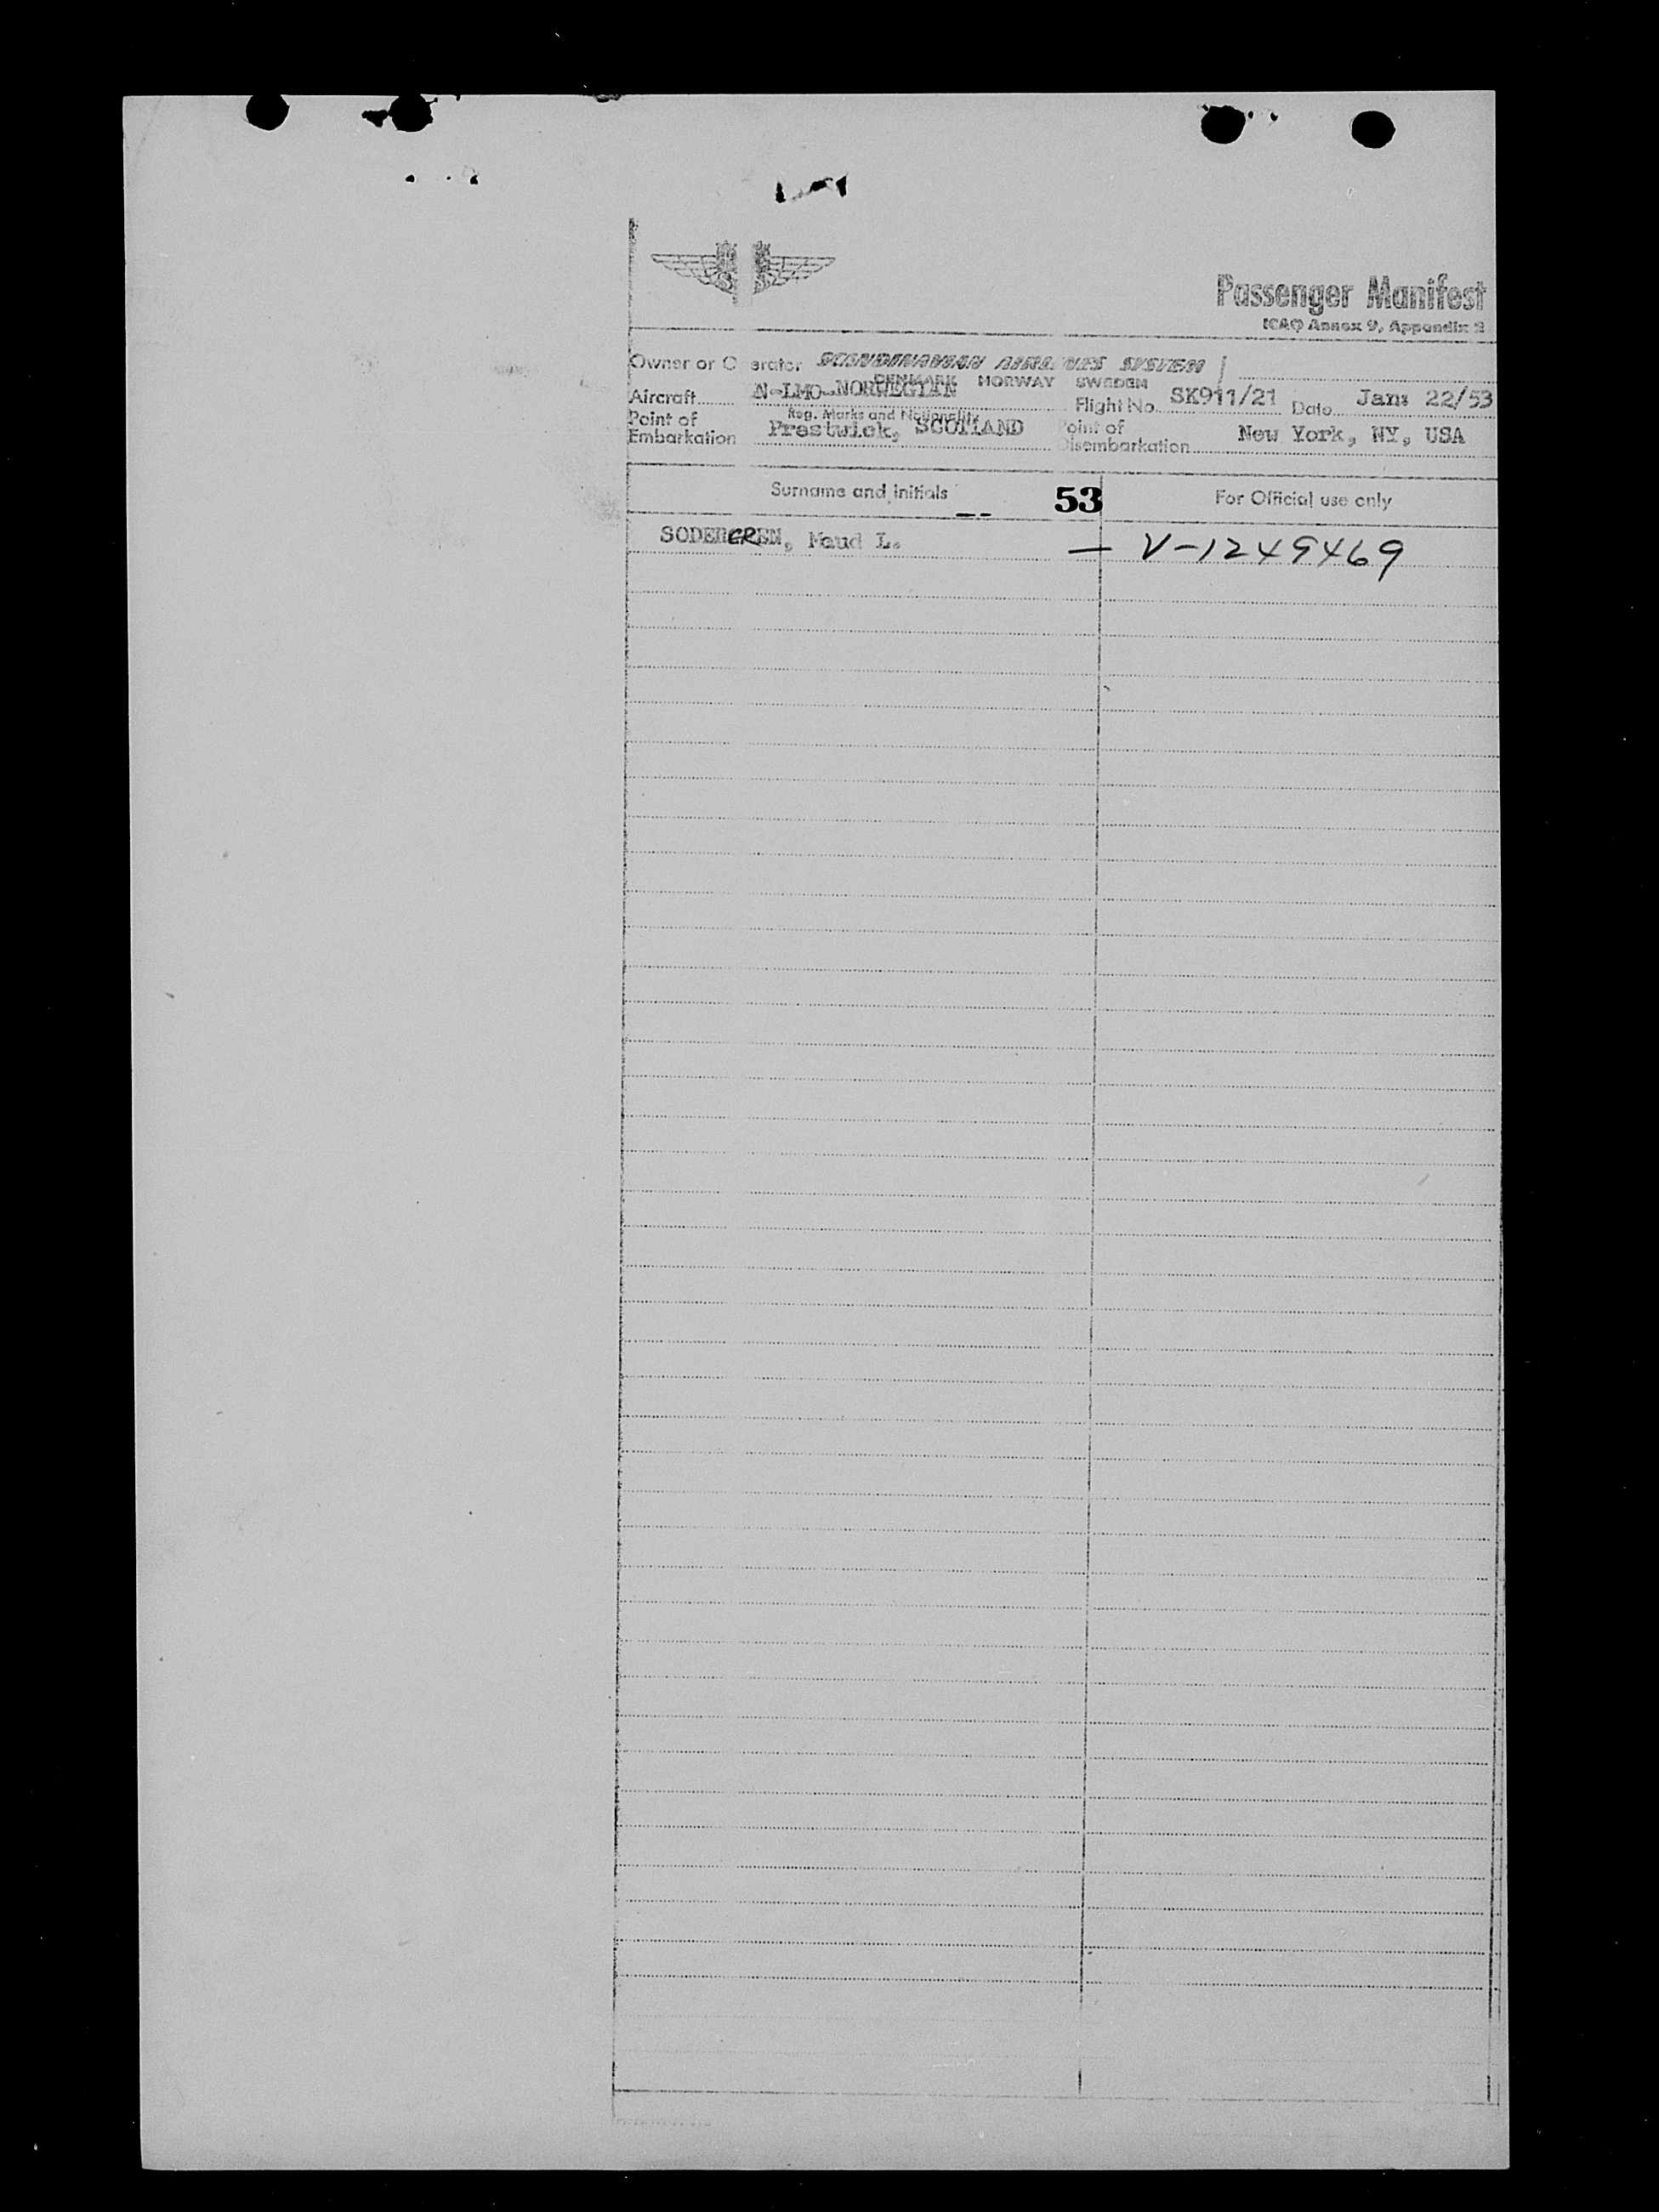 Passenger Manifest
ICAO Annex 9, Appendix 3
Owner or O erator SCANDINAVIAN AIRLINES SYSTEM
DENMARK NORWAY SWEDEN
Aircraft N-LMO-NORWEGIAN Flight No. SK911/21 Date Jan: 22/53
Reg. Marks and Nationality
Point of Embarkation Prestwick, SCOTLAND Point of Disembarkation New York, NY, USA
Surname and initials 53 For Official use only
SODERGREN, Maud L. — V-1249469